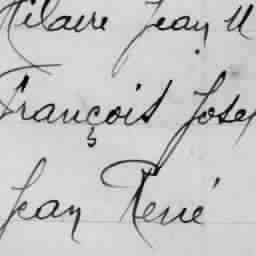 Hilaire Jean M
François Josep
Jean René